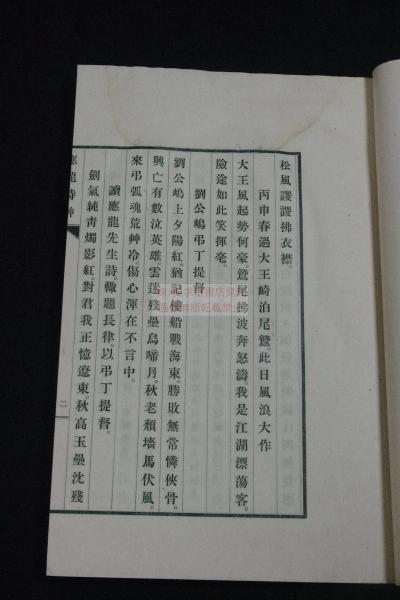 松風謖謖拂衣襟。
丙申春過大王崎泊尾鷲。此日風浪大作
大王風起勢何豪。鷲尾拂波奔怒濤。我是江湖漂蕩客。
險途如此笑揮毫。
劉公嶋弔丁提督
劉公嶋上夕陽紅。猶記樓船戰海東。勝敗無常憐俠骨。
興亡有數泣英雄。雲迷殘壘烏啼月。秋老頽墻馬伏風。
來弔孤魂荒艸冷。傷心渾在不言中。
讀應龍先生詩。輙題長律。以弔丁提督。
劍氣純靑燭影紅。對君我正憶遼東。秋高玉壘沈殘
應龍詩艸
二